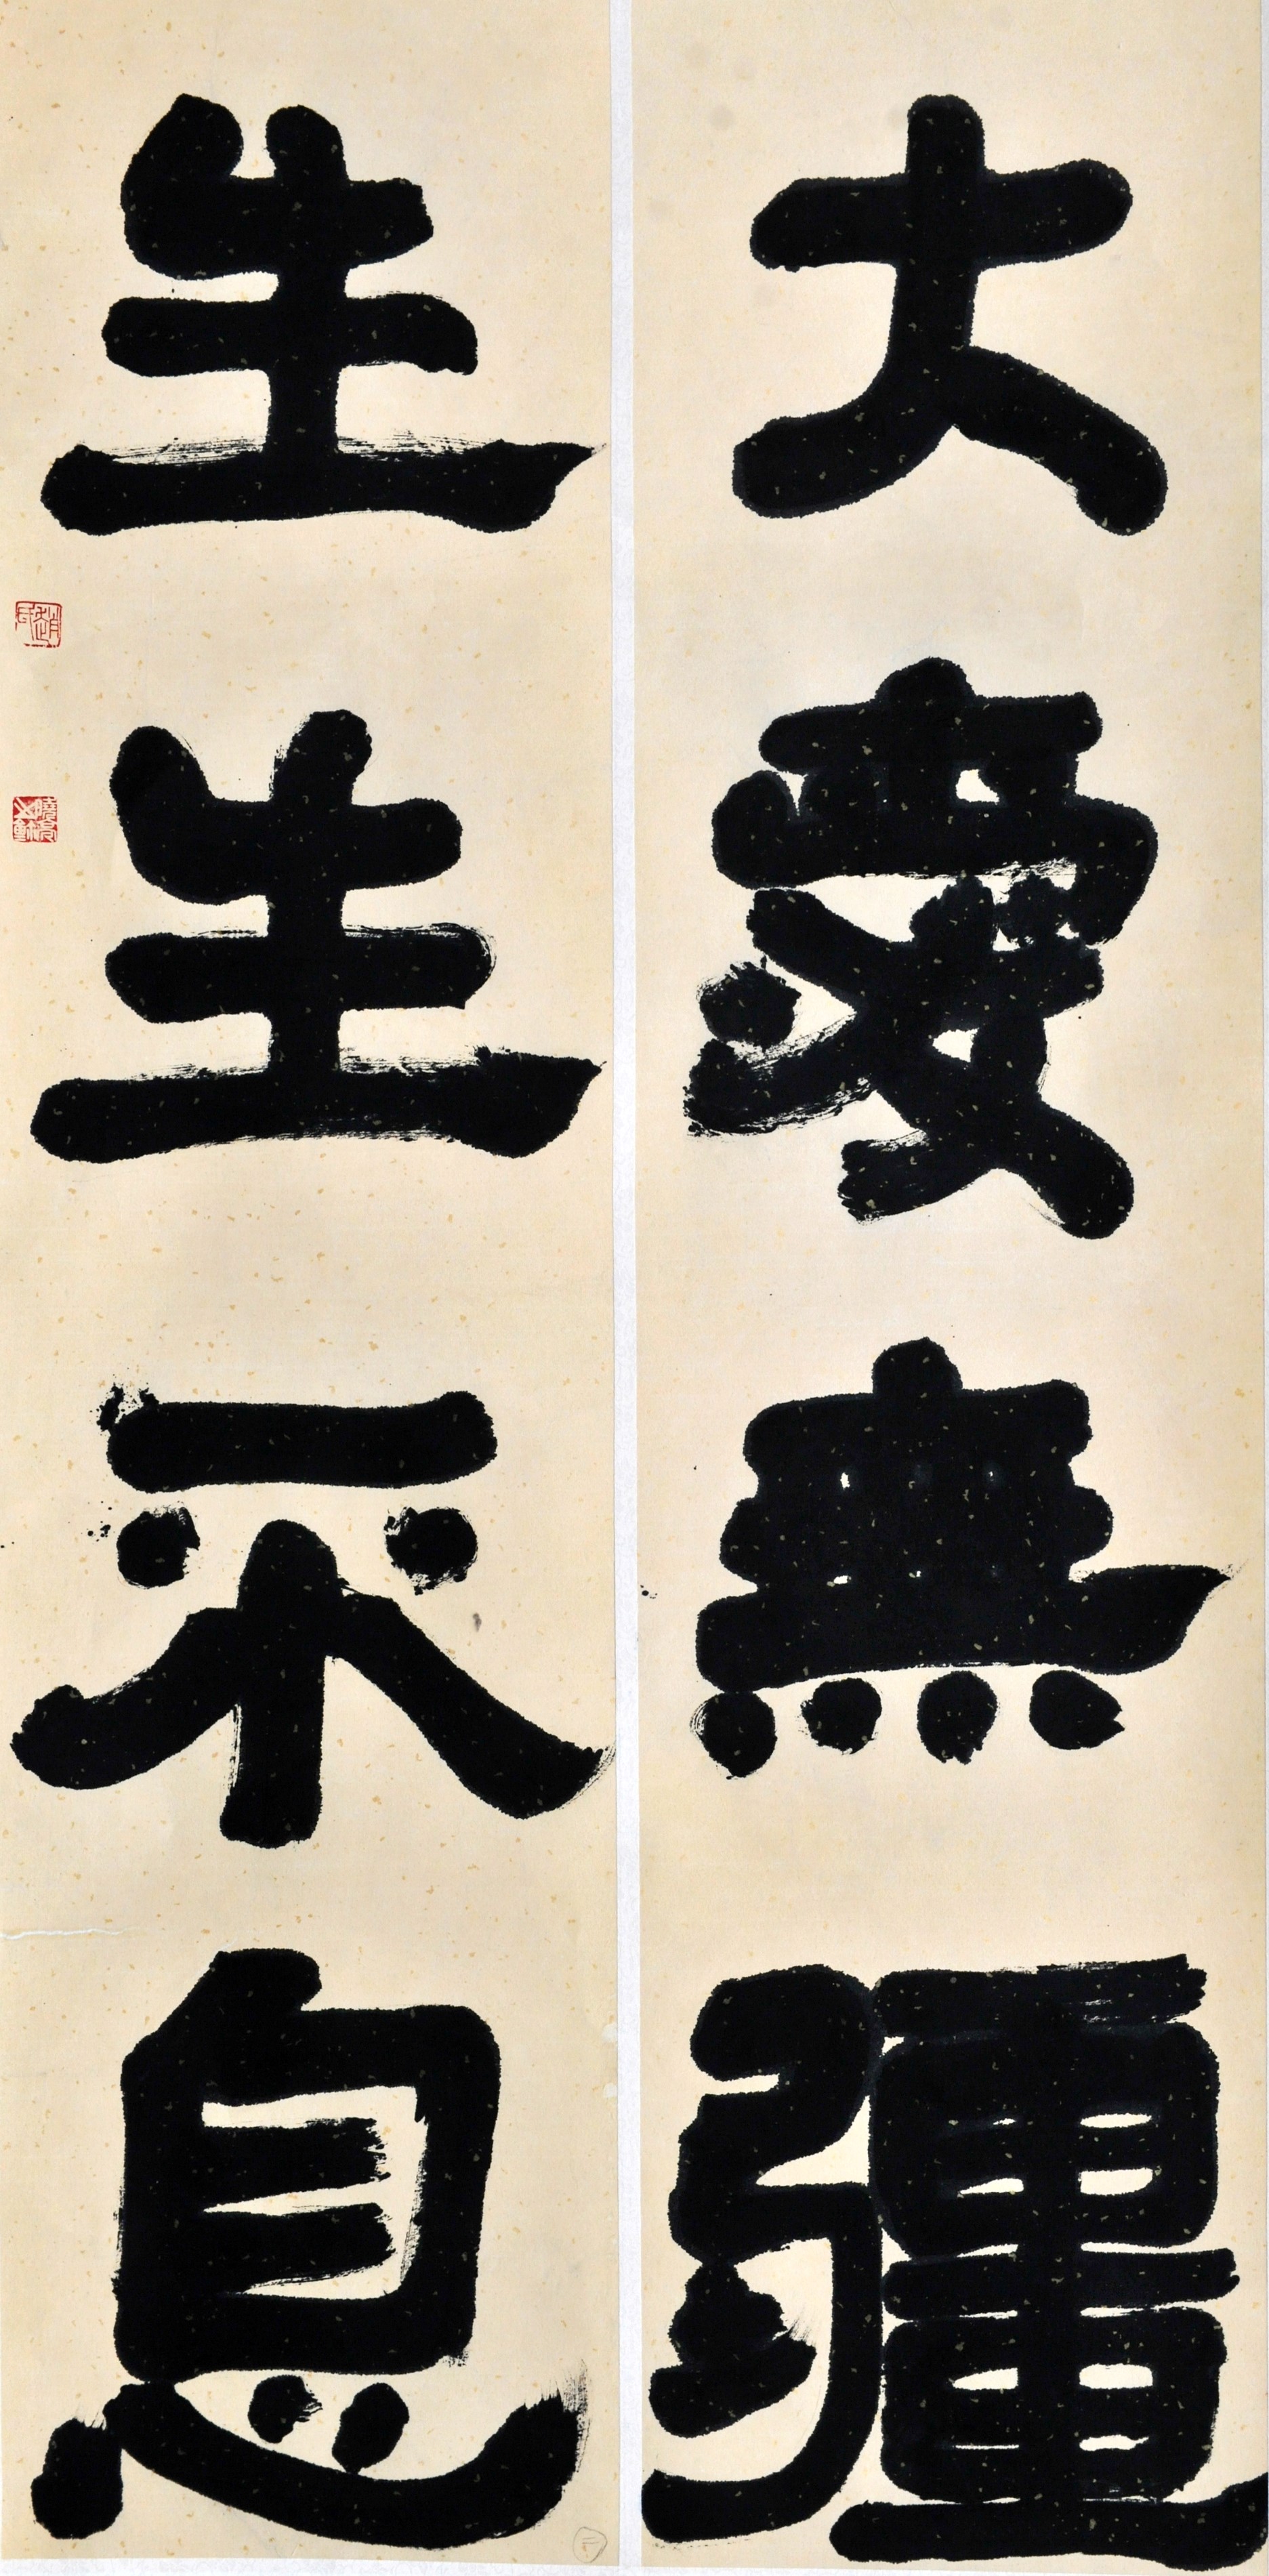 大愛無疆
生生不息